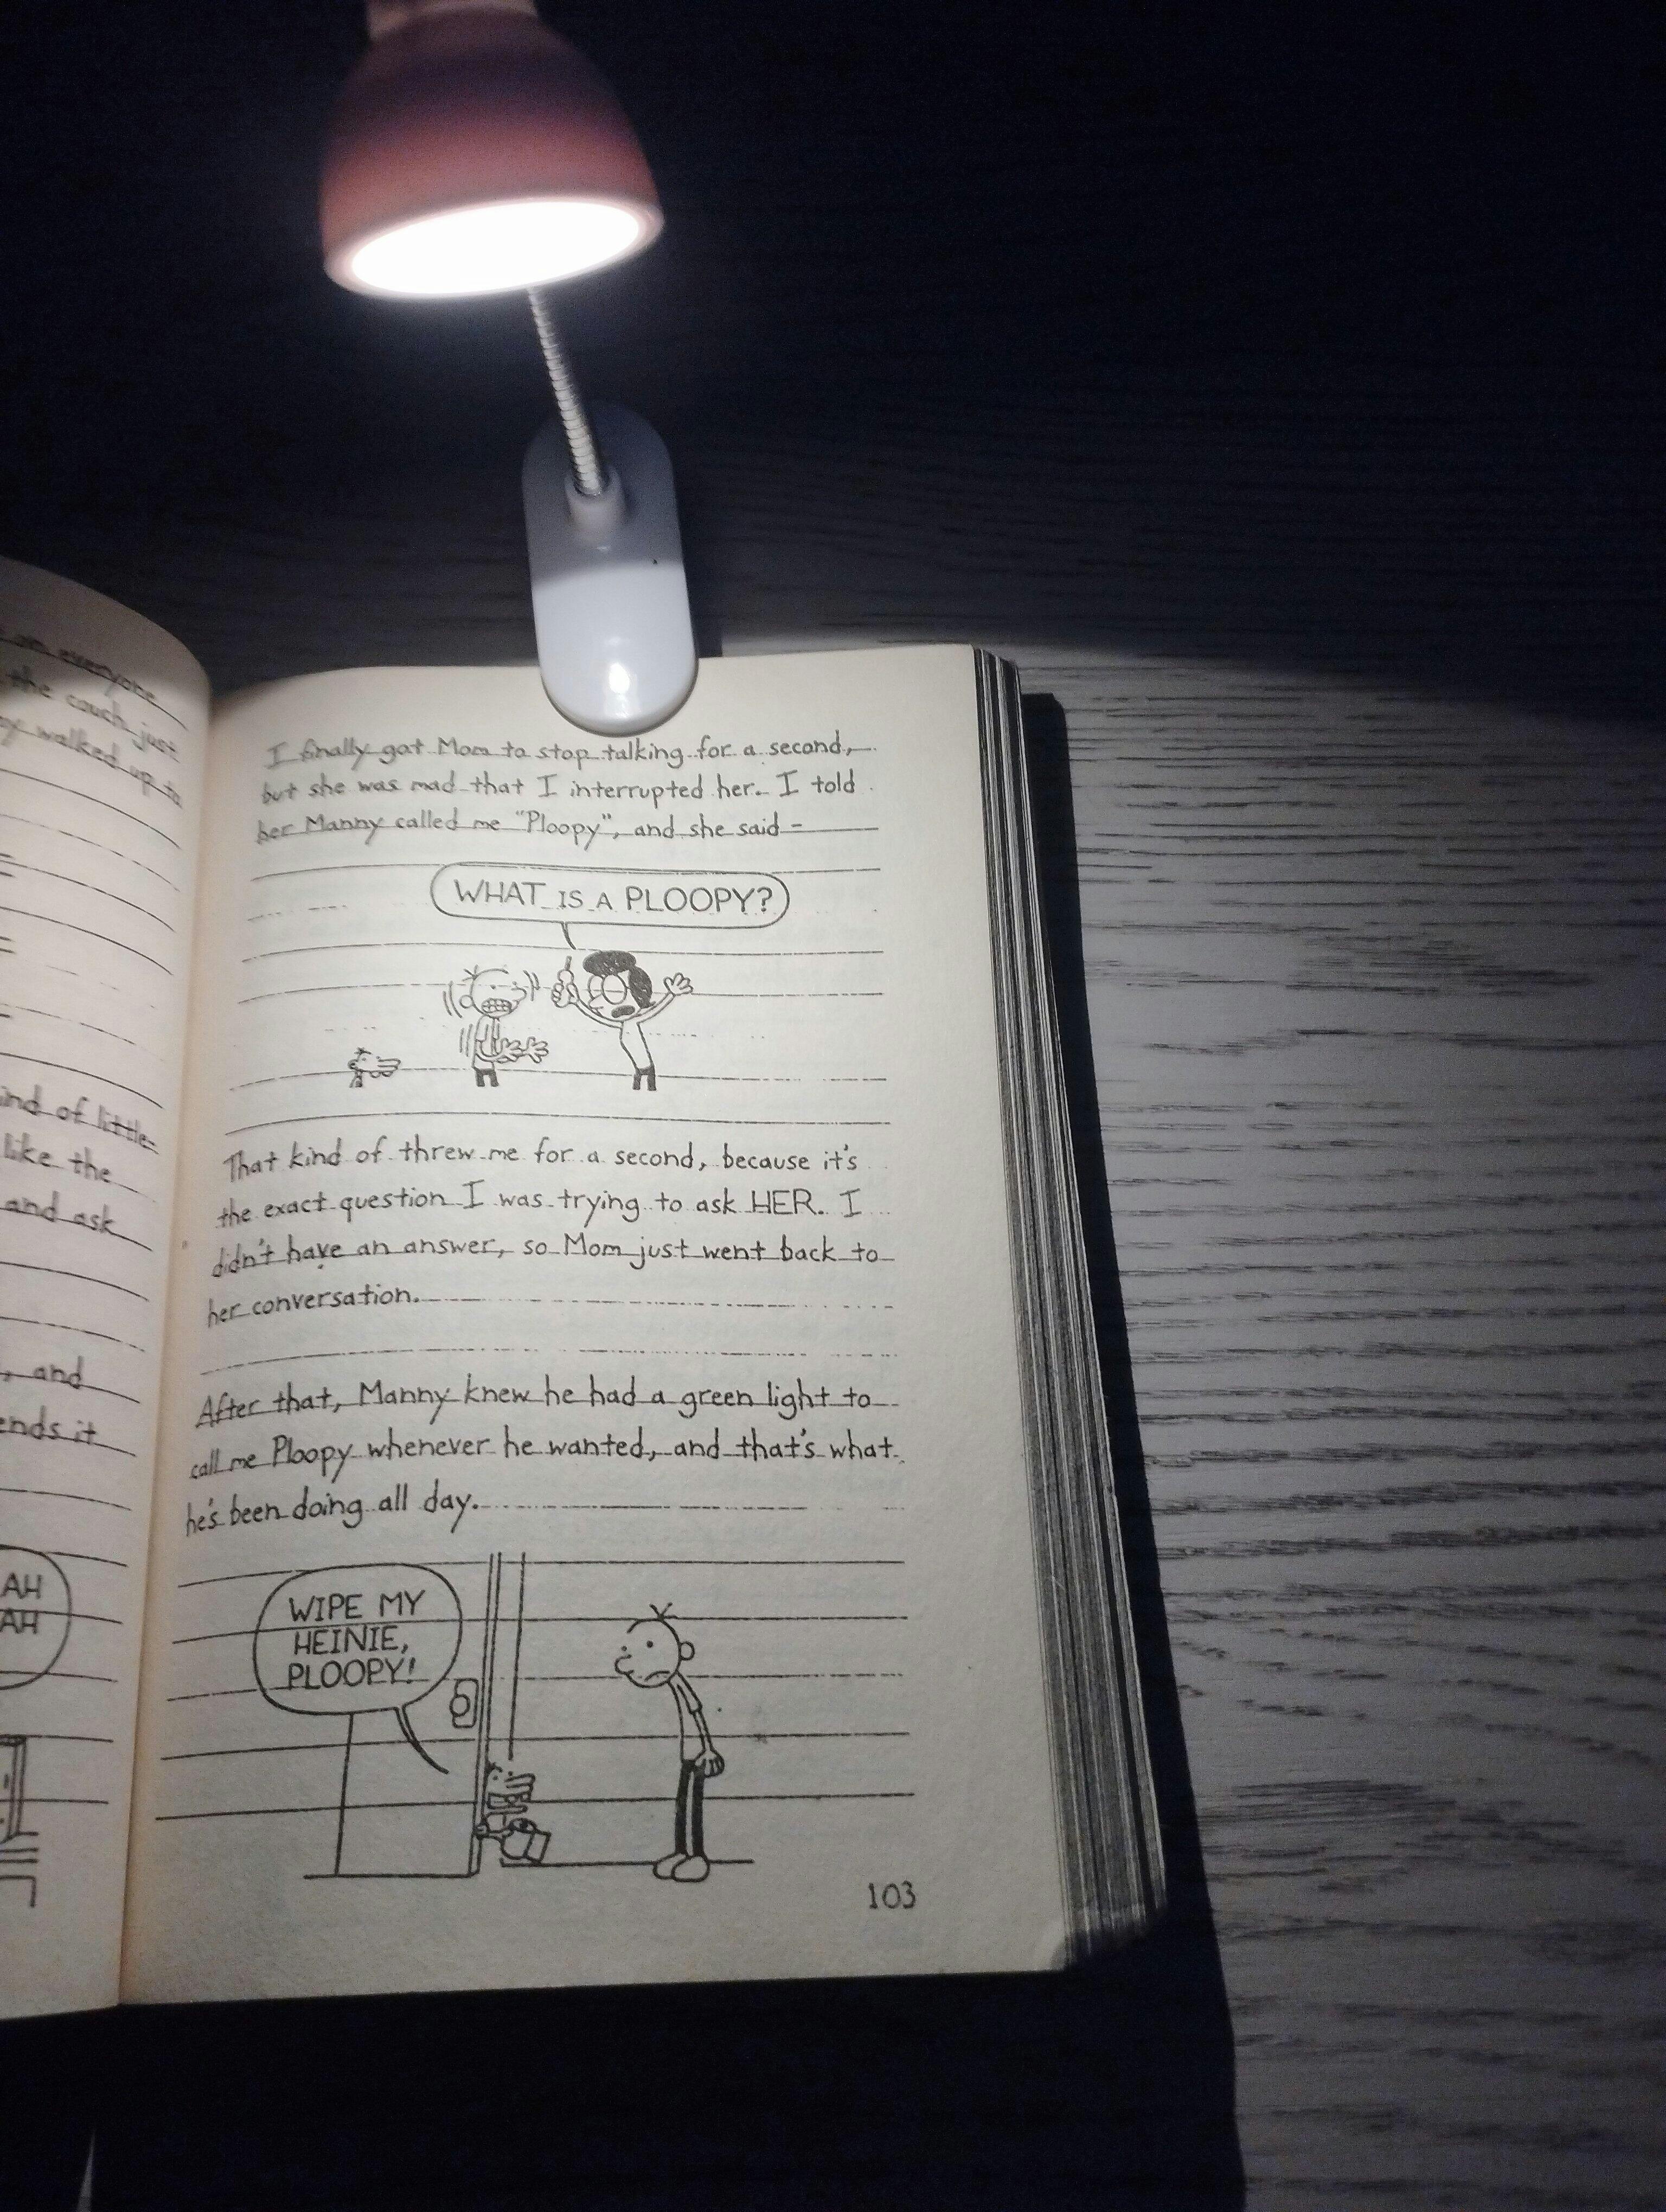 on everyone
the couch just
walked up to
kind of little
like the
and ask
, and
ends it
AH
AH
I finally got Mom to stop talking for a second,
but she was mad that I interrupted her. I told
her Manny called me "Ploopy", and she said -
WHAT IS A PLOOPY?
That kind of threw me for a second, because it's
the exact question I was trying to ask HER. I
didn't have an answer, so Mom just went back to
her conversation.
After that, Manny knew he had a green light to
call me Ploopy whenever he wanted, and that's what
he's been doing all day.
WIPE MY
HEINIE,
PLOOPY!
103